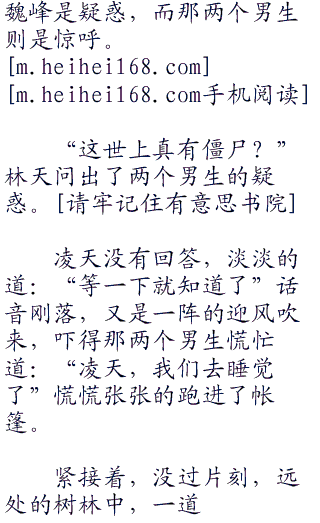 魏峰是疑惑，而那两个男生
则是惊呼。
[m.heihei168.com]
[m.heihei168.com手机阅读]
“这世上真有僵尸？”
林天问出了两个男生的疑
惑。[请牢记住有意思书院]
凌天没有回答，淡淡的
道：“等一下就知道了”话
音刚落，又是一阵的迎风吹
来，吓得那两个男生慌忙
道：“凌天，我们去睡觉
了”慌慌张张的跑进了帐
篷。
紧接着，没过片刻，远
处的树林中，一道